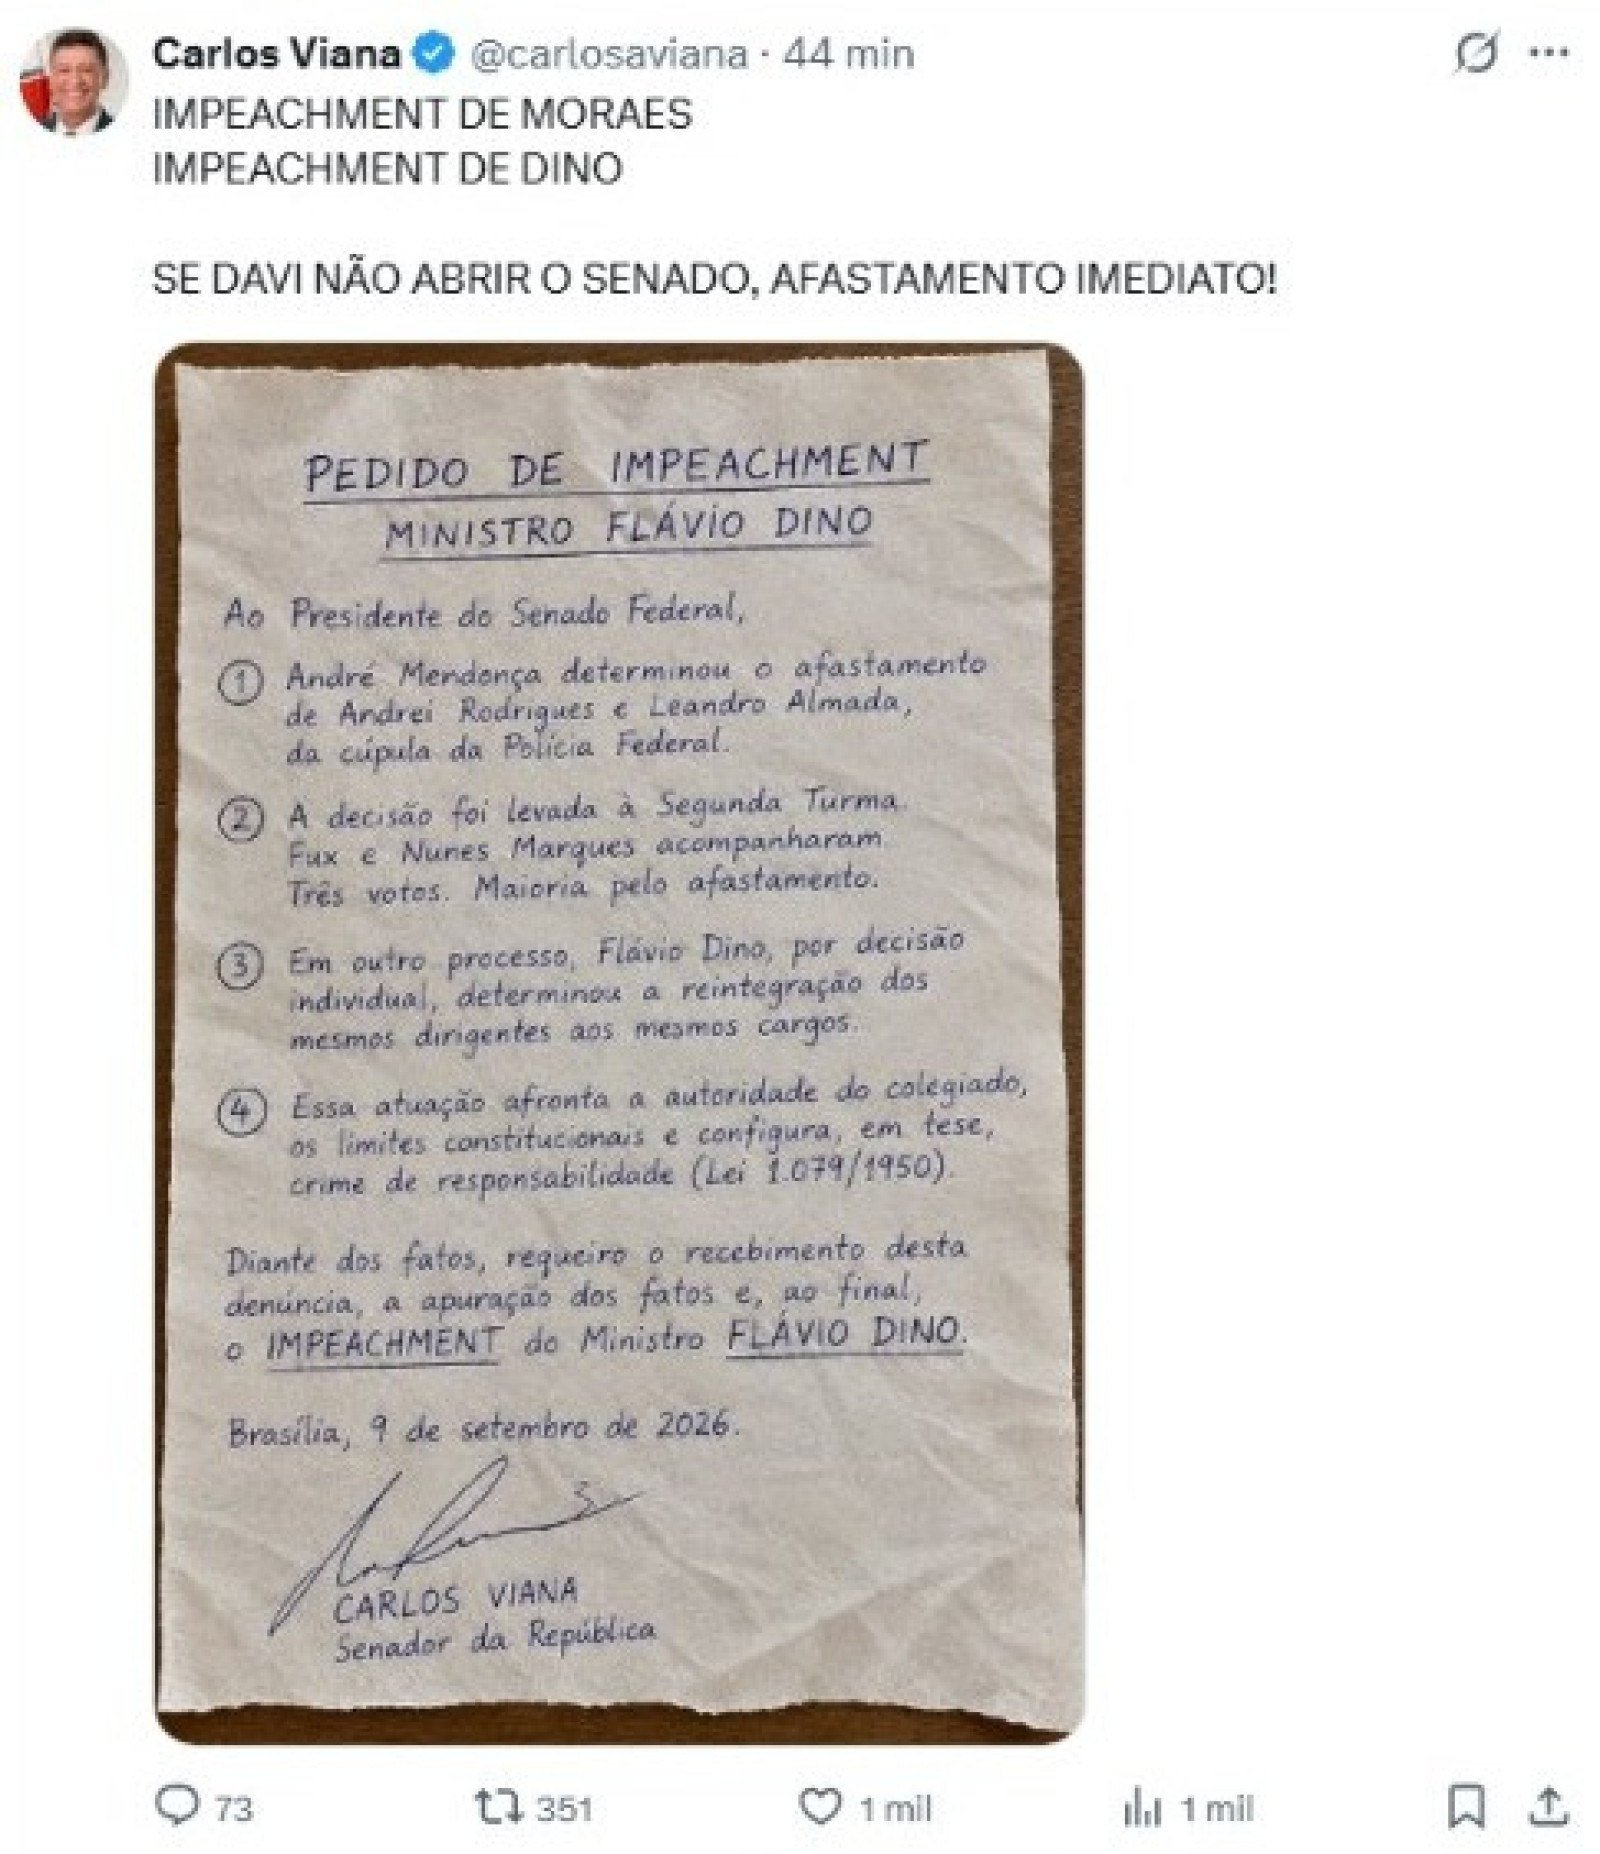 Carlos Viana @carlosaviana · 44 min
IMPEACHMENT DE MORAES
IMPEACHMENT DE DINO
SE DAVI NÃO ABRIR O SENADO, AFASTAMENTO IMEDIATO!
PEDIDO DE IMPEACHMENT
MINISTRO FLÁVIO DINO
Ao Presidente do Senado Federal,
1 André Mendonça determinou o afastamento
de Andrei Rodrigues e Leandro Almada,
da cúpula da Polícia Federal.
2 A decisão foi levada à Segunda Turma.
Fux e Nunes Marques acompanharam.
Três votos. Maioria pelo afastamento.
3 Em outro processo, Flávio Dino, por decisão
individual, determinou a reintegração dos
mesmos dirigentes aos mesmos cargos.
4 Essa atuação afronta a autoridade do colegiado,
os limites constitucionais e configura, em tese,
crime de responsabilidade (Lei 1.079/1950).
Diante dos fatos, requeiro o recebimento desta
denúncia, a apuração dos fatos e, ao final,
o IMPEACHMENT do Ministro FLÁVIO DINO.
Brasília, 9 de setembro de 2026.
CARLOS VIANA
Senador da República
73 351 1 mil 1 mil